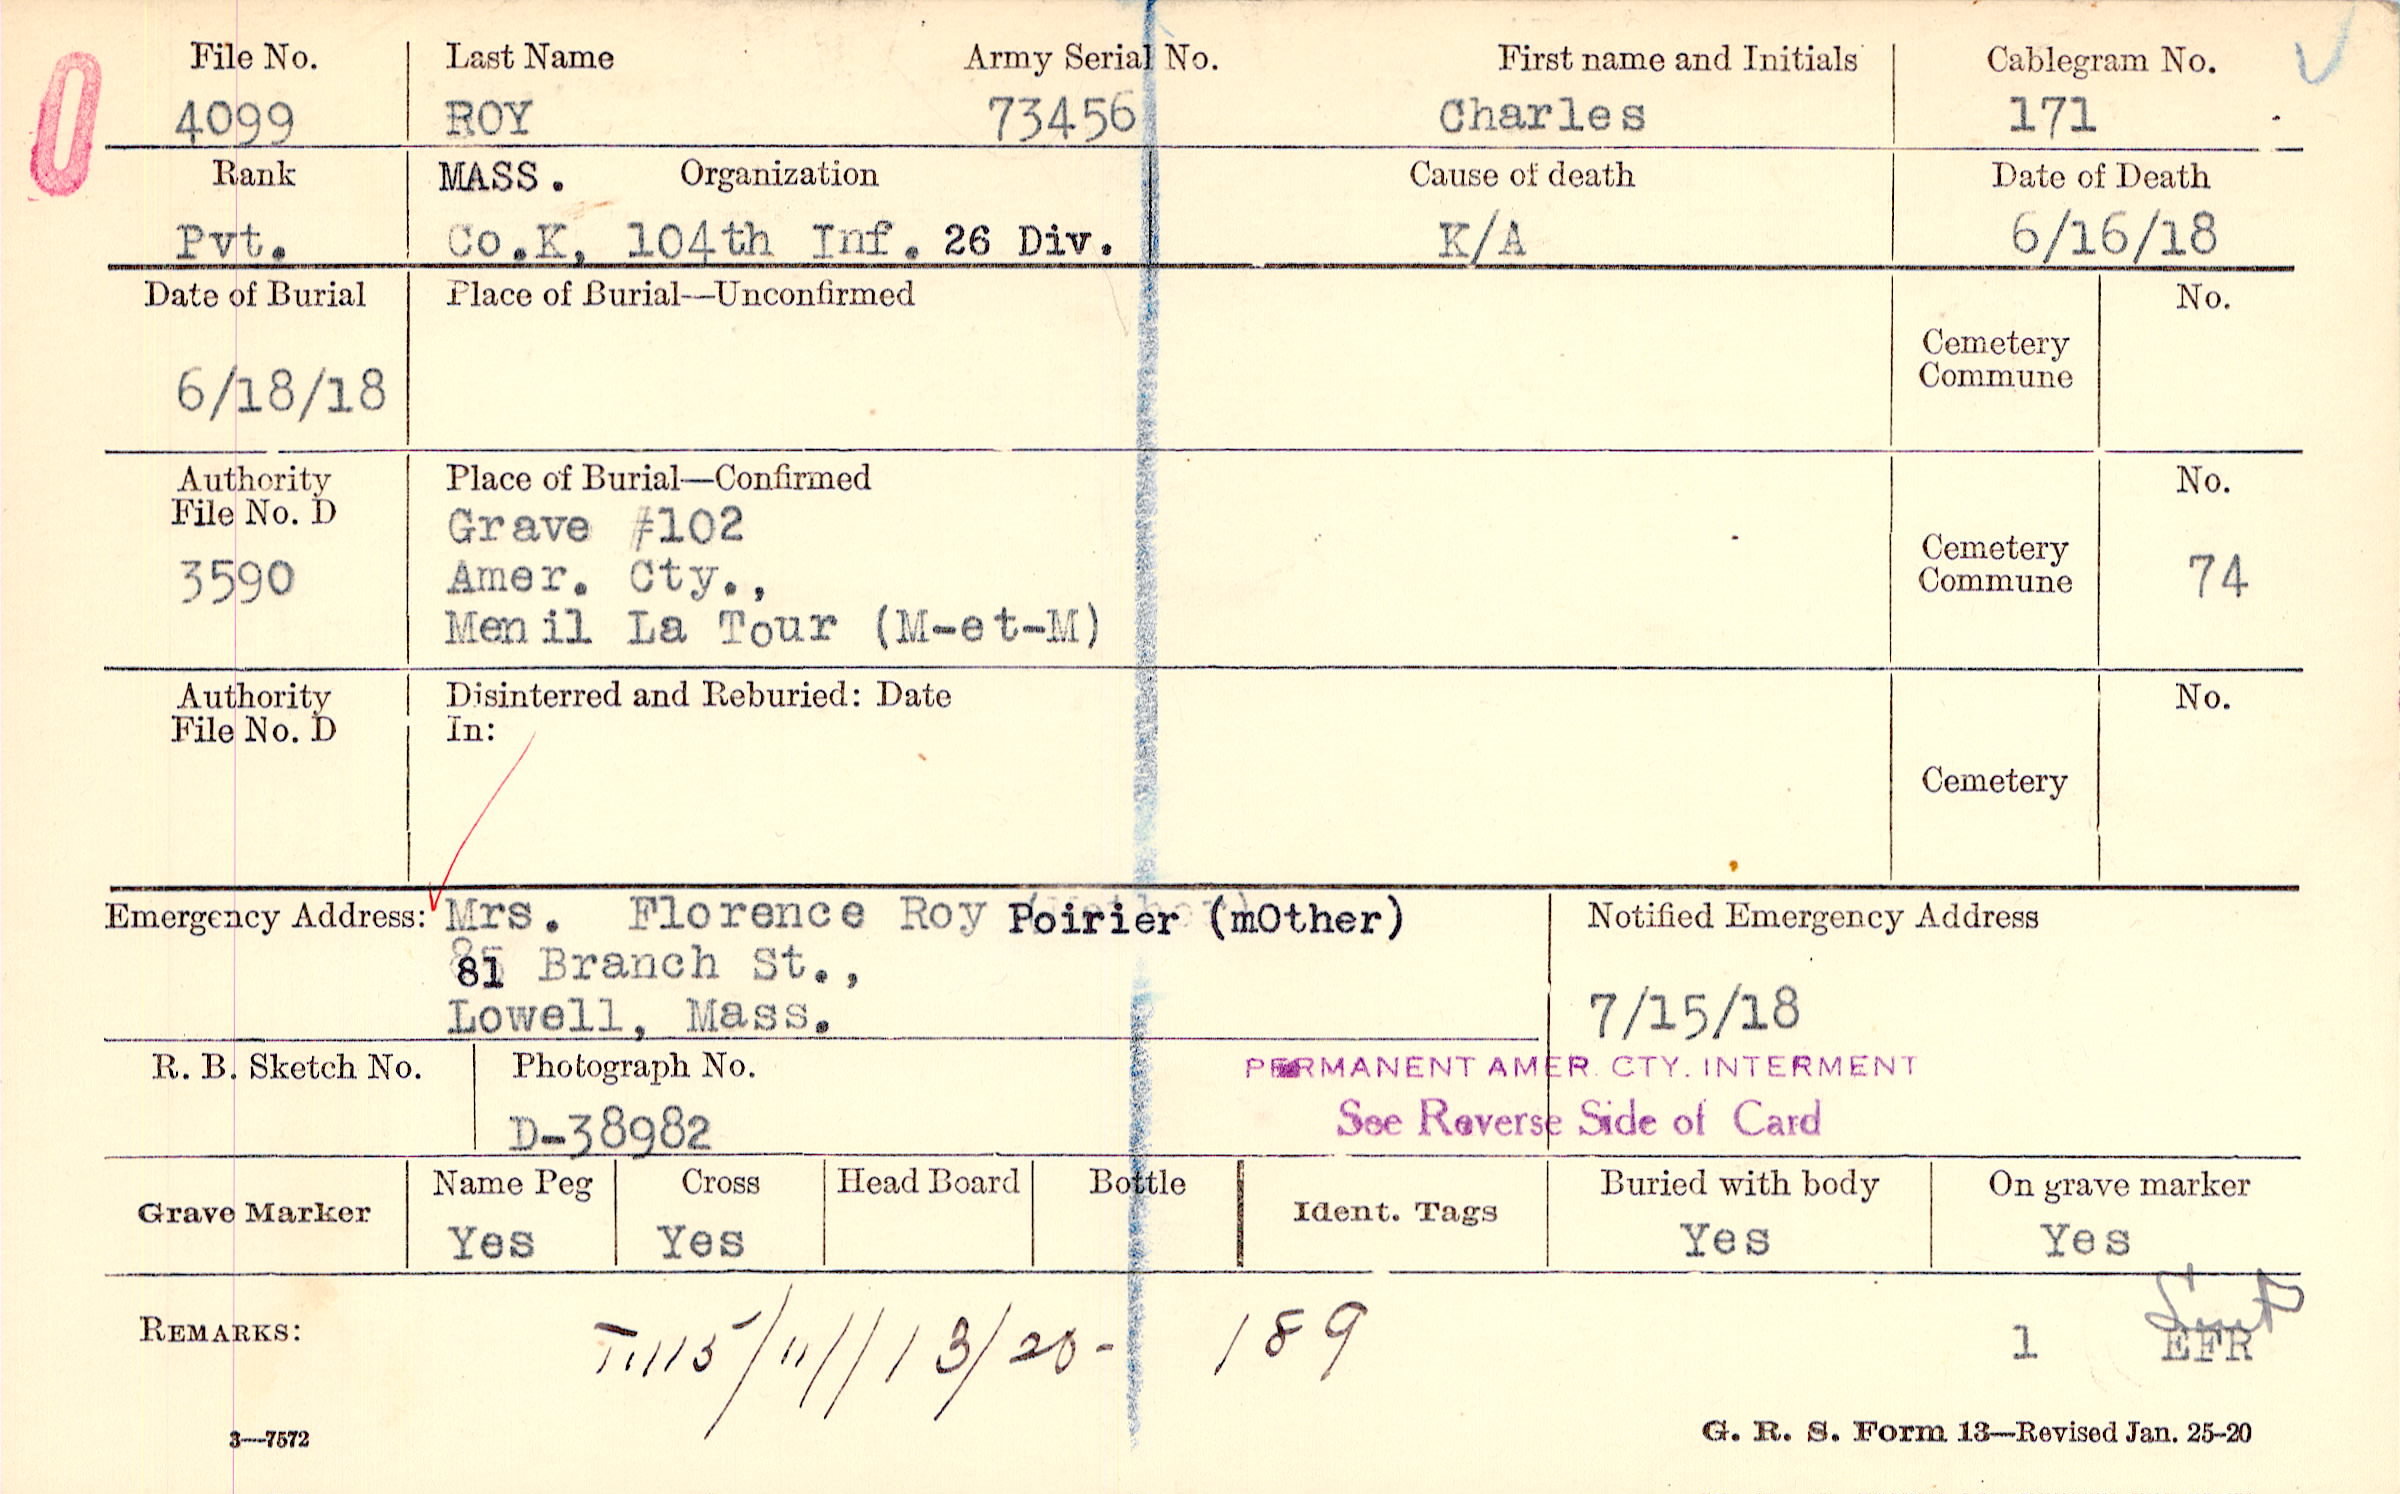 File No. Last Name Army Serial No. First name and Initials Cablegram No.
4099 ROY 73456 Charles 171
Rank MASS. Organization Cause of death Date of Death
Pvt. Co.K, 104th Inf. 26 Div. K/A 6/16/18
Date of Burial Place of Burial—Unconfirmed No.
Cemetery
Commune
6/18/18
Authority Place of Burial—Confirmed No.
File No. D
Grave #102
Cemetery
3590 Amer. Cty., Commune 74
Menil La Tour (M-et-M)
Authority Disinterred and Reburied: Date No.
File No. D In:
Cemetery
Emergency Address: Mrs. Florence Roy Poirier (mOther) Notified Emergency Address
81 Branch St.,
Lowell, Mass. 7/15/18
R. B. Sketch No. Photograph No. PERMANENT AMER. CTY. INTERMENT
D-38982 See Reverse Side of Card
Grave Marker Name Peg Cross Head Board Bottle Ident. Tags Buried with body On grave marker
Yes Yes Yes Yes
REMARKS: 13/20- 189 1 EFR
3—7572 G. R. S. Form 13—Revised Jan. 25-20